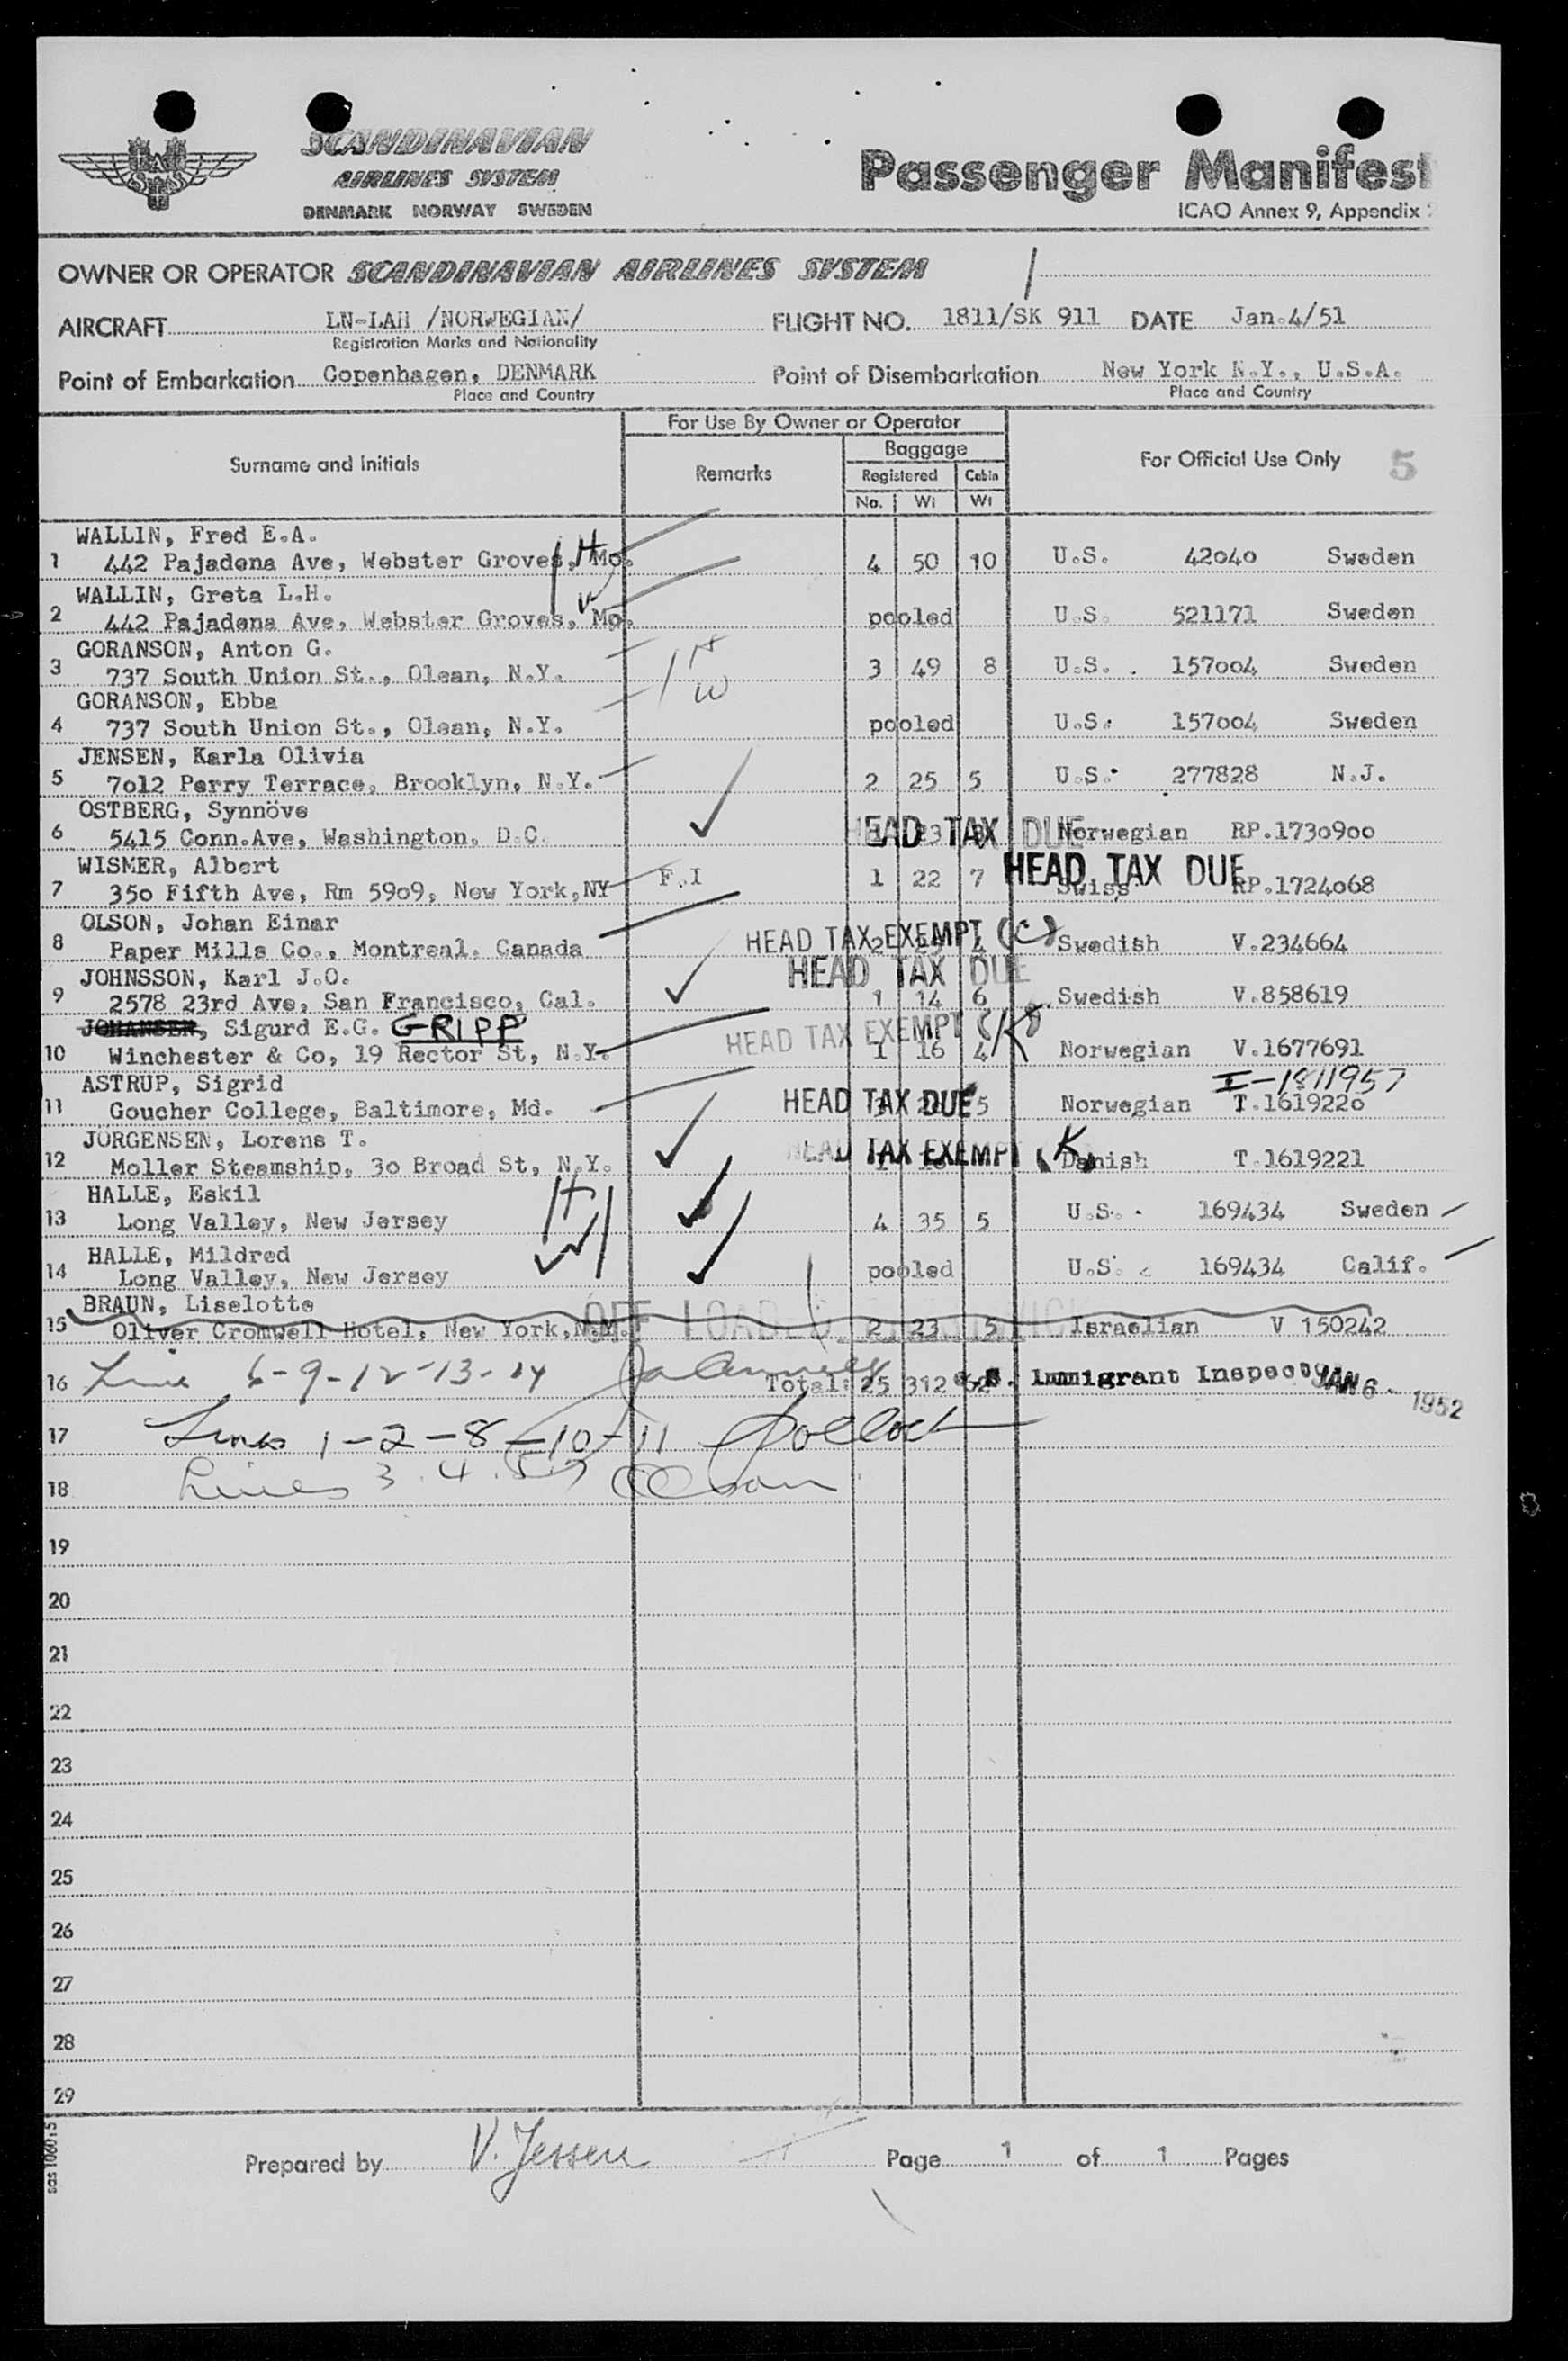 SAS
SCANDINAVIAN
AIRLINES SYSTEM
DENMARK NORWAY SWEDEN
Passenger Manifest
ICAO Annex 9, Appendix
OWNER OR OPERATOR SCANDINAVIAN AIRLINES SYSTEM
AIRCRAFT LN-LAH /NORWEGIAN/ FLIGHT NO. 1811/SK 911 DATE Jan.4/51
Registration Marks and Nationality
Point of Embarkation Copenhagen, DENMARK Point of Disembarkation New York N.Y., U.S.A.
Place and Country Place and Country
For Use By Owner or Operator
Surname and Initials Remarks Baggage For Official Use Only 5
Registered Cabin
No. Wt Wt
WALLIN, Fred E.A.
1 442 Pajadena Ave, Webster Groves, Mo. H 4 50 10 U.S. 42040 Sweden
WALLIN, Greta L.H.
2 442 Pajadena Ave, Webster Groves, Mo. W pooled U.S. 521171 Sweden
GORANSON, Anton G.
3 737 South Union St., Olean, N.Y. H 3 49 8 U.S. 157004 Sweden
GORANSON, Ebba W
4 737 South Union St., Olean, N.Y. pooled U.S. 157004 Sweden
JENSEN, Karla Olivia
5 7012 Perry Terrace, Brooklyn, N.Y. 2 25 5 U.S. 277828 N.J.
OSTBERG, Synnöve
6 5415 Conn.Ave, Washington, D.C. HEAD TAX DUE 1 23 Norwegian RP.1730900
WISMER, Albert
7 350 Fifth Ave, Rm 5909, New York,NY F.I 1 22 7 HEAD TAX DUE Swiss RP.1724068
OLSON, Johan Einar
8 Paper Mills Co., Montreal, Canada HEAD TAX EXEMPT (C) 2 4 Swedish V.234664
JOHNSSON, Karl J.O. HEAD TAX DUE
9 2578 23rd Ave, San Francisco, Cal. 1 14 6 Swedish V.858619
JOHANSEN, Sigurd E.G. GRIPP
10 Winchester & Co, 19 Rector St, N.Y. HEAD TAX EXEMPT (K) 1 16 4 Norwegian V.1677691
ASTRUP, Sigrid I-1811957
11 Goucher College, Baltimore, Md. HEAD TAX DUE 5 Norwegian T.1619220
JORGENSEN, Lorens T.
12 Moller Steamship, 30 Broad St, N.Y. HEAD TAX EXEMPT (K) Danish T.1619221
HALLE, Eskil
13 Long Valley, New Jersey H 4 35 5 U.S. 169434 Sweden
HALLE, Mildred
14 Long Valley, New Jersey W pooled U.S. 169434 Calif.
BRAUN, Liselotte
15 Oliver Cromwell Hotel, New York,N.Y. OFF LOADED 2 23 5 Israelian V 150242
16 Line 6-9-12-13-14 Total: 25 312 Immigrant Inspector JAN 6 - 1952
17 Lines 1-2-8-10-11 Pollock
18 Lines 3.4.5.7
19
20
21
22
23
24
25
26
27
28
29
sas 1060:5
Prepared by V. Jessen Page 1 of 1 Pages